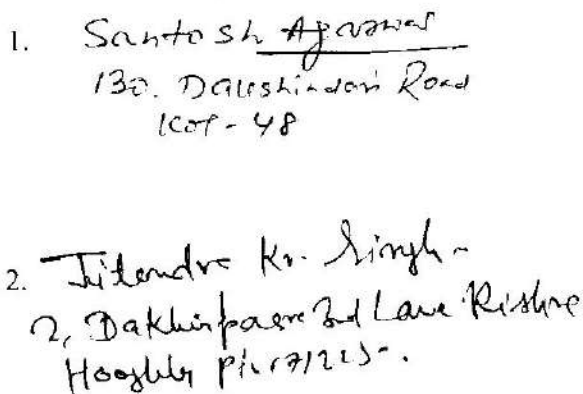 1. Santosh Agarwal
130. Dakshindari Road
Kol - 48
2. Jitendra Kr. Singh
2, Dakhinpara 2nd Lane Rishra
Hooghly Pin